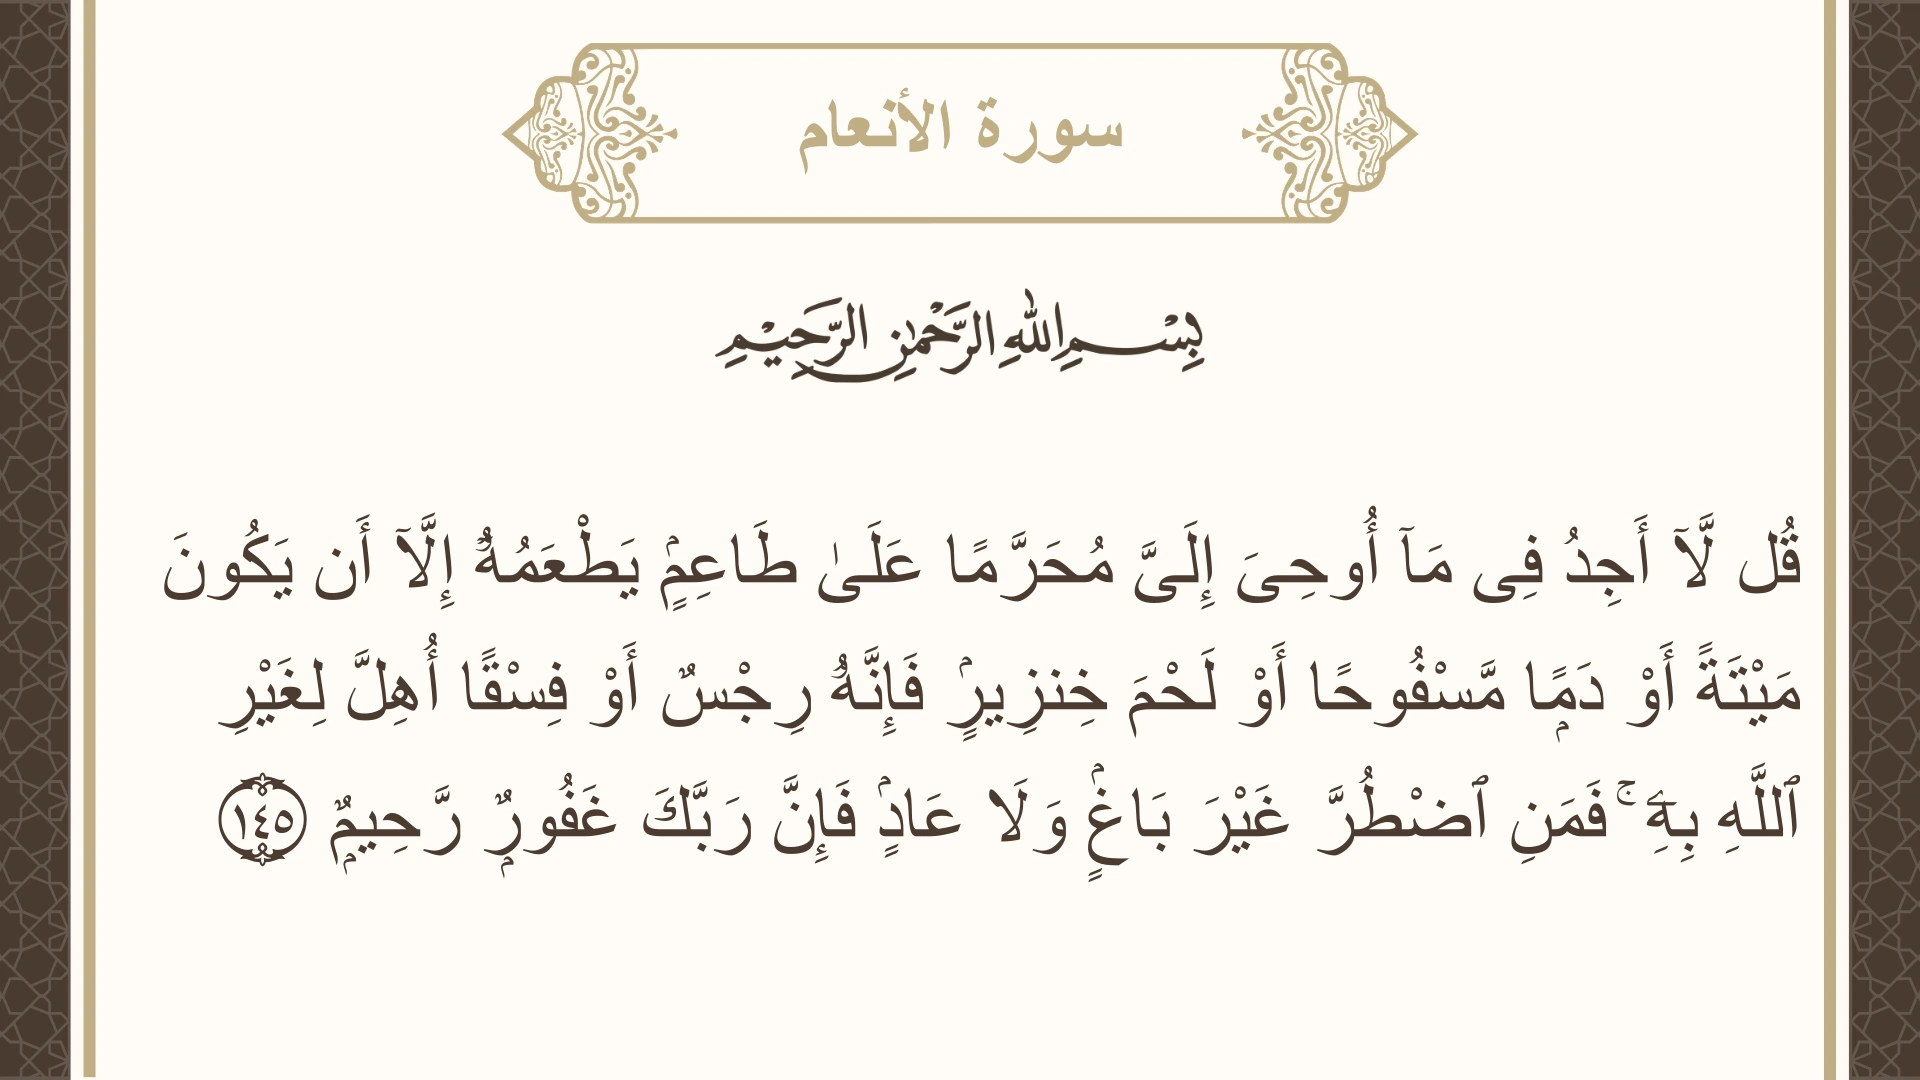 سورة الأنعام
بِسْمِ اللهِ الرَّحْمٰنِ الرَّحِيْمِ
قُل لَّآ أَجِدُ فِى مَآ أُوحِىَ إِلَىَّ مُحَرَّمًا عَلَىٰ طَاعِمٍۢ يَطْعَمُهُۥٓ إِلَّآ أَن يَكُونَ
مَيْتَةً أَوْ دَمًۭا مَّسْفُوحًا أَوْ لَحْمَ خِنزِيرٍۢ فَإِنَّهُۥ رِجْسٌ أَوْ فِسْقًا أُهِلَّ لِغَيْرِ
ٱللَّهِ بِهِۦ ۚ فَمَنِ ٱضْطُرَّ غَيْرَ بَاغٍۢ وَلَا عَادٍۢ فَإِنَّ رَبَّكَ غَفُورٌۭ رَّحِيمٌۭ ١٤٥